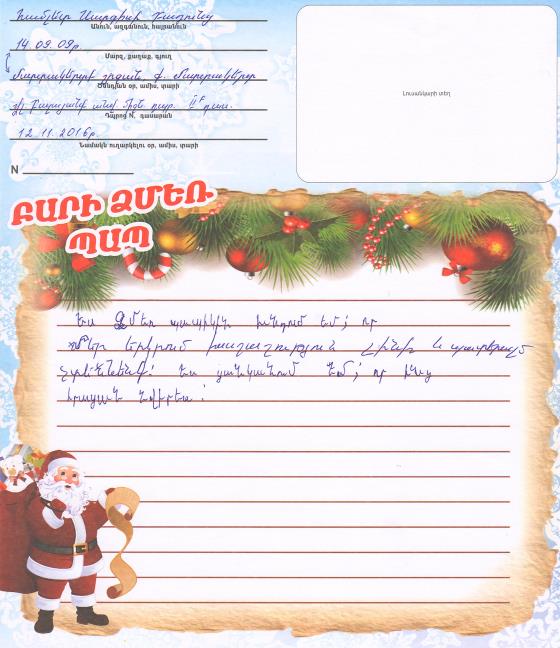 Համլետ Սարգիսի Բադունց
Անուն, ազգանուն, հայրանուն
14.09.09թ.
Մարզ, քաղաք, գյուղ
Մարտակերտի շրջան ք. Մարտակերտ
Ծննդյան օր, ամիս, տարի
անվ. միջն. դպր. դաս.
Դպրոց N, դասարան
12.11.2016թ.
Նամակն ուղարկելու օր, ամիս, տարի
N
Լուսանկարի տեղ
ԲԱՐԻ ՁՄԵՌ
ՊԱՊ
Ես Ձմեռ պապիկին խնդրում եմ, որ
մեր երկրում խաղաղություն լինի և պատերազմ
չունենենք: Ես ցանկանում եմ, որ ինձ
իրական նվիրես: